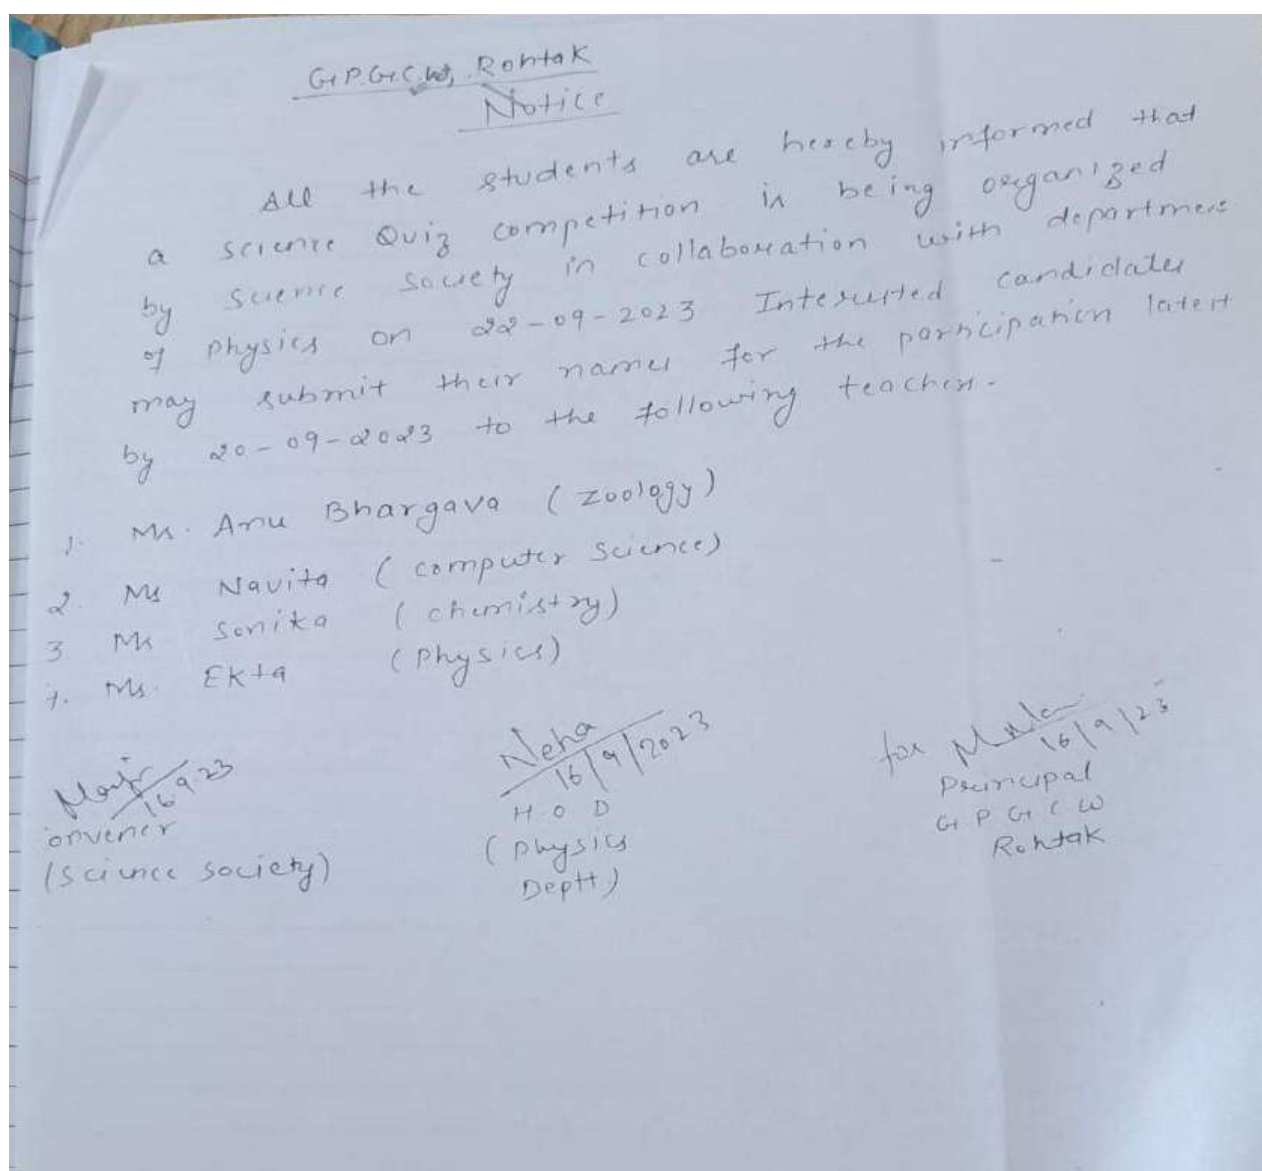 G.P.G.C.W, Rohtak
Notice
All the students are hereby informed that
a science Quiz competition is being organized
by Science Society in collaboration with department
of Physics on 22-09-2023 Interested candidates
may submit their names for the participation latest
by 20-09-2023 to the following teachers.
1. Ms. Anu Bhargava (Zoology)
2. Ms Navita (Computer Science)
3 Ms Sonika (Chemistry)
4. Ms. Ekta (Physics)
16 9 23
onvener
(Science society)
Neha
16/9/2023
H O D
(Physics
Deptt)
for
16/9/23
Principal
G P G C W
Rohtak